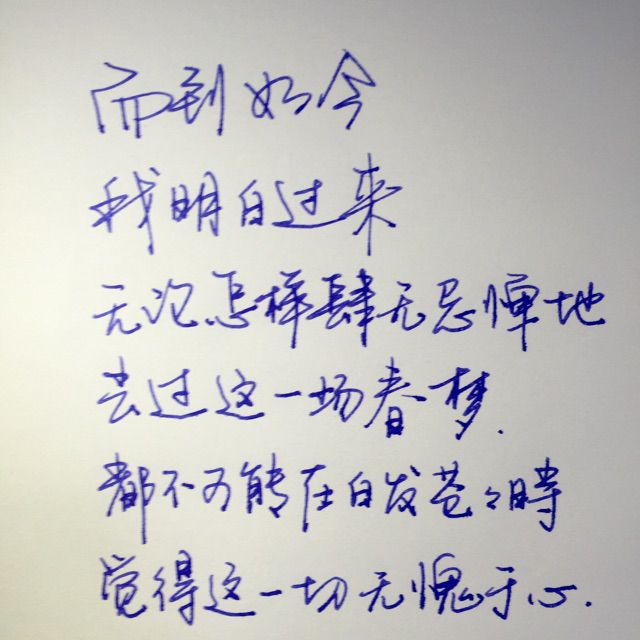 而到如今
我明白过来
无论怎样肆无忌惮地
去过这一场春梦.
都不可能在白发苍々時
觉得这一切无愧于心.